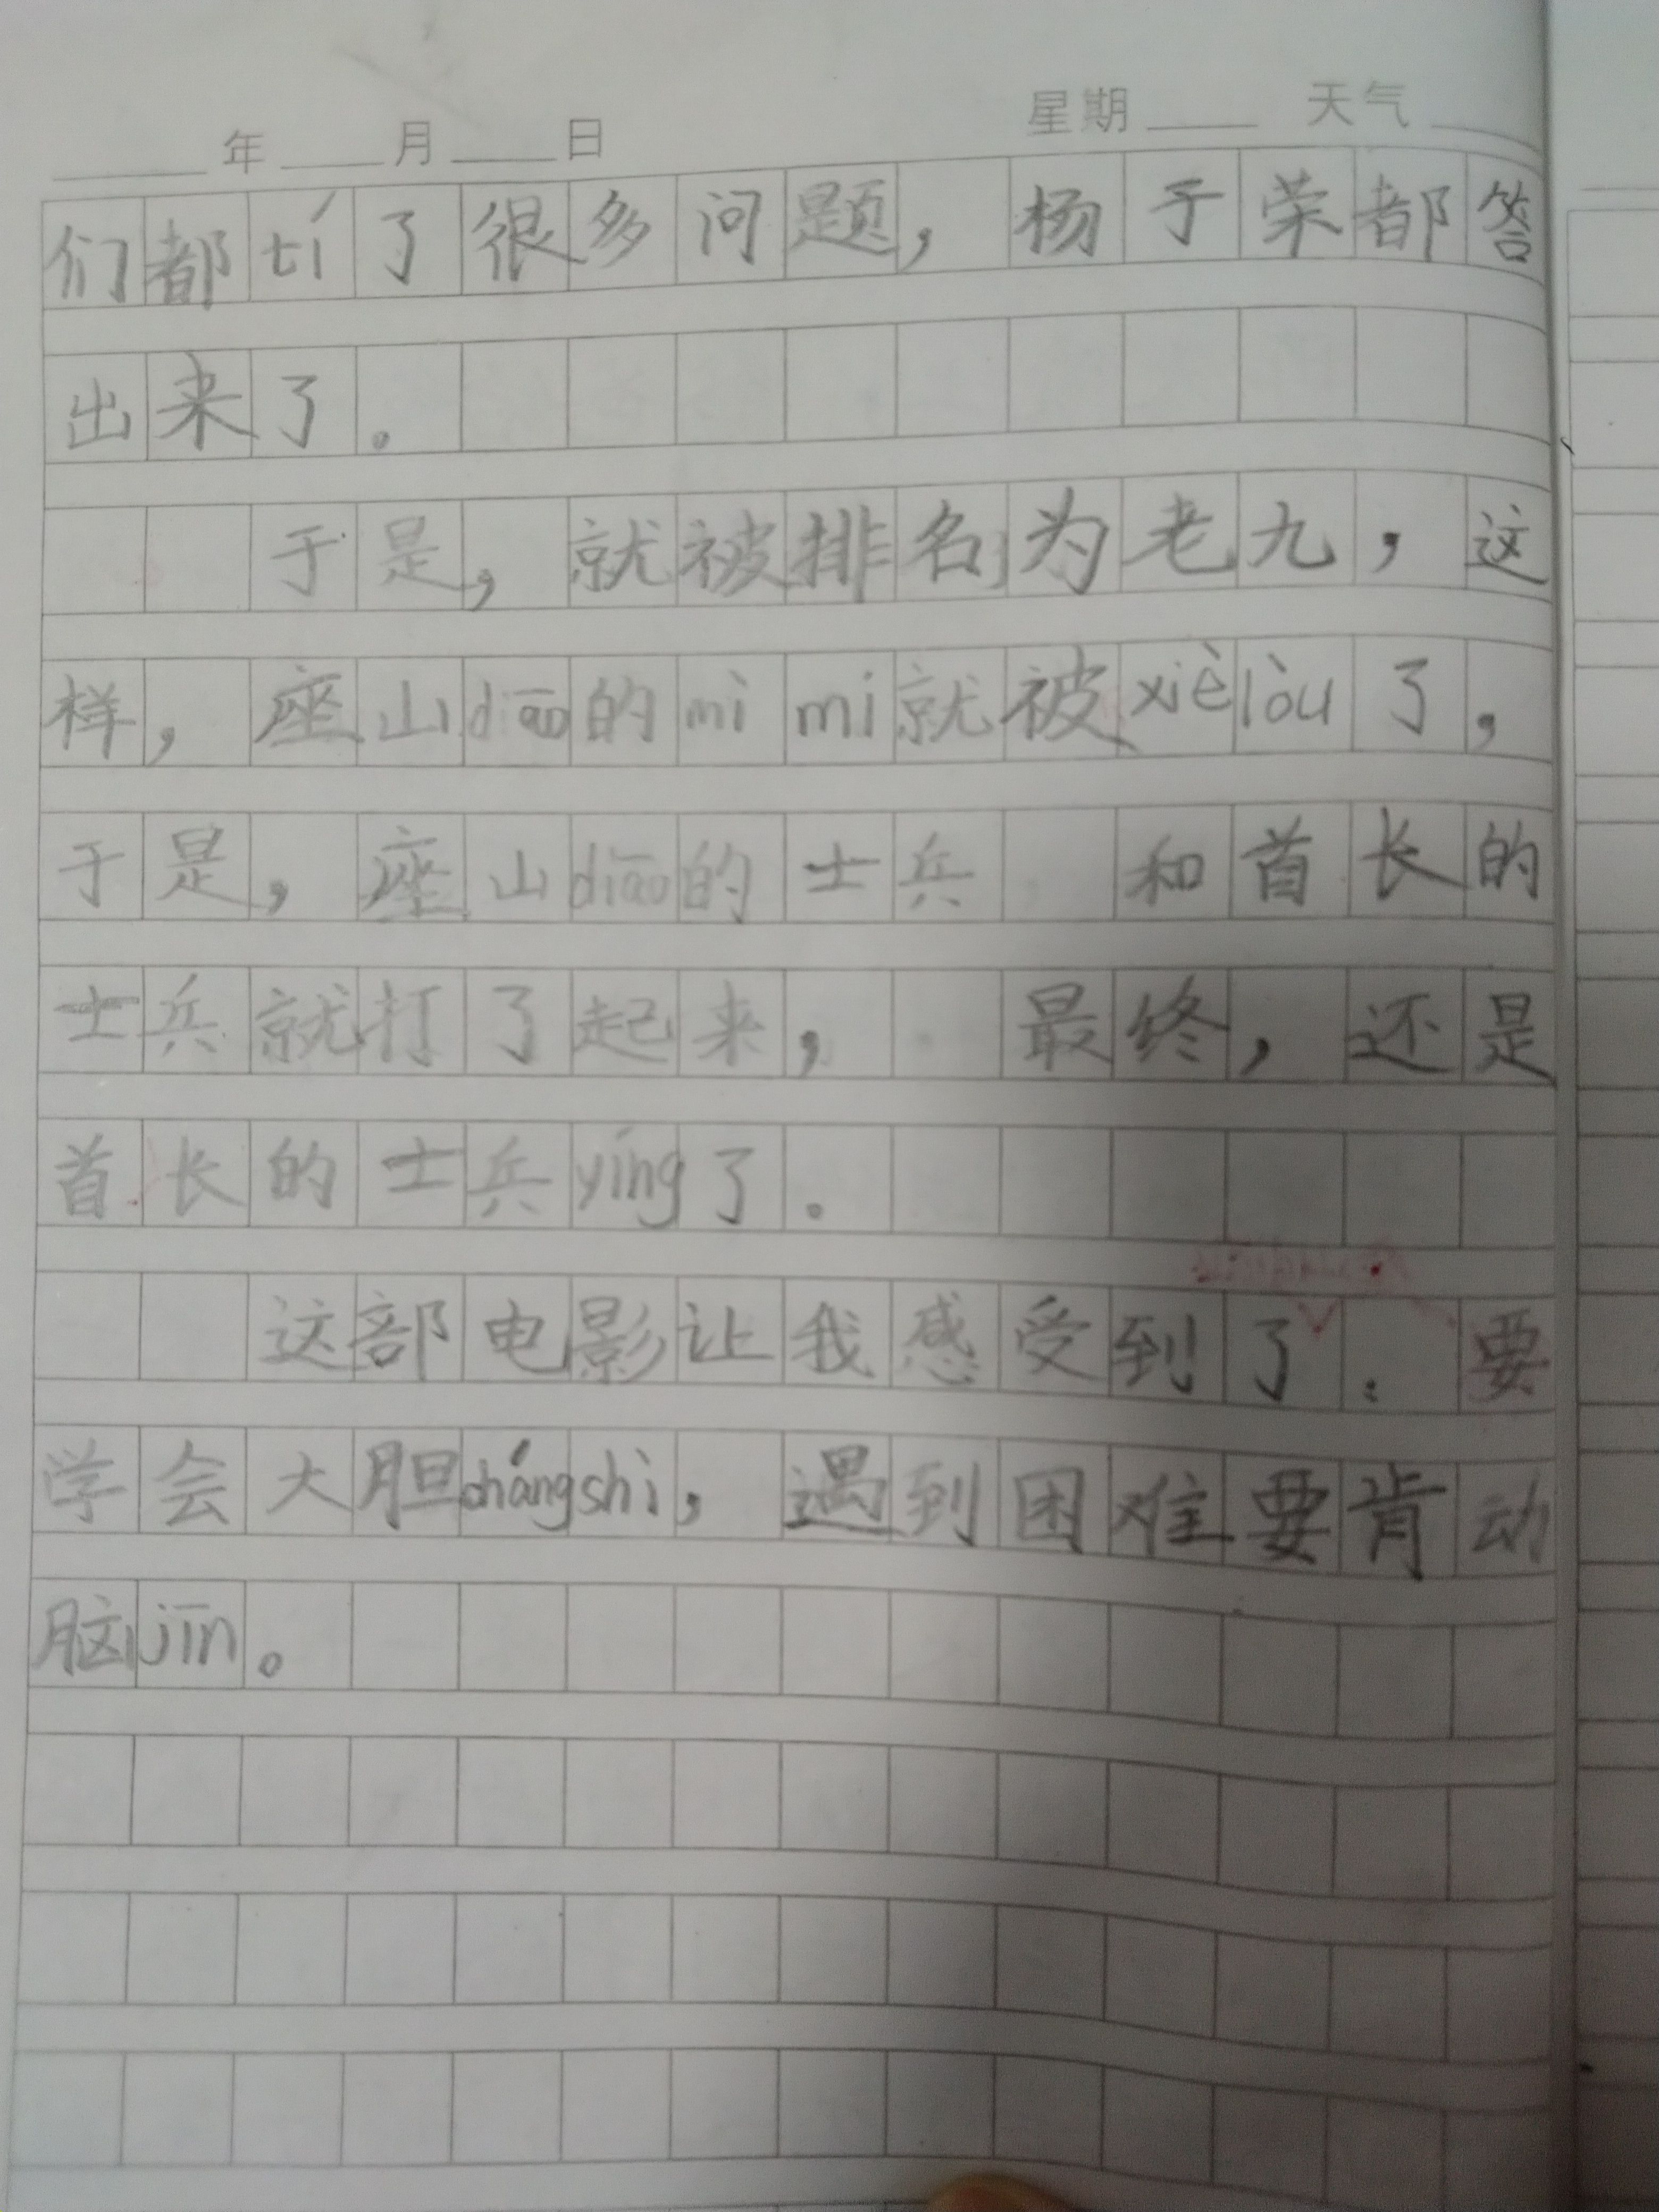 年 月 日 星期 天气
们都tí了很多问题，杨于荣都答
出来了。
于是，就被排名为老九，这
样，座山diāo的mì mì就被xièlòu了，
于是，座山diāo的士兵 和首长的
士兵就打了起来， 最终，还是
首长的士兵yíng了。
这部电影让我感受到了：要
学会大胆chángshì，遇到困难要肯动
脑jīn。